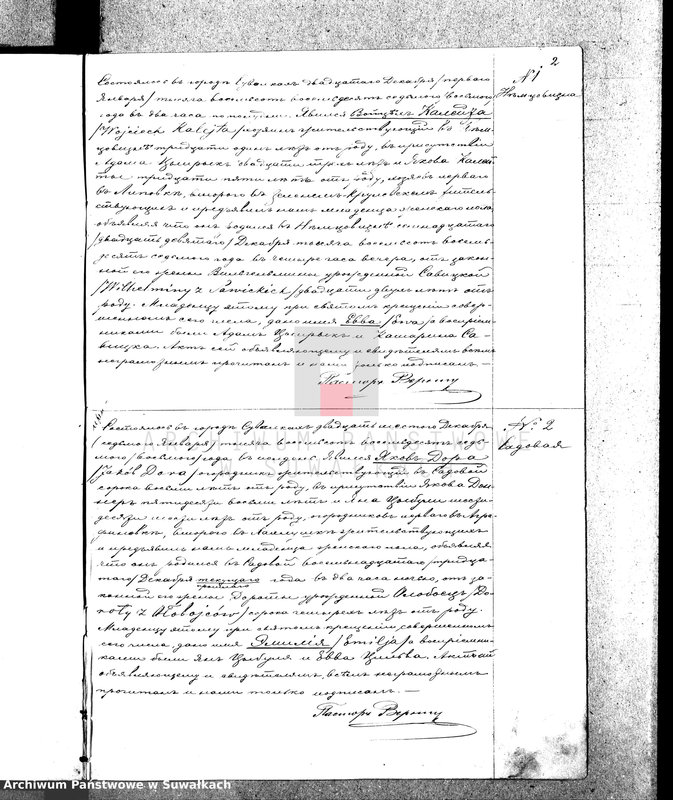 2
N 1
Нѣмцовизна
Состоялось въ городѣ Сувалкахъ двадцатаго Декабря /перваго
Января/ тысяча восемьсотъ восемьдесятъ седьмаго /восьмаго/
года въ два часа по полудни. Явился Войцѣхъ Калейта
/Wojciech Kalejta/ жительствующій въ Нѣм-
цовизнѣ тридцати одинъ лѣтъ отъ роду, въ присутствіи
Адама двадцати трехъ лѣтъ и Якова Калей-
ты тридцати пяти лѣтъ отъ роду, перваго
въ Липовкѣ, втораго въ житель-
ствующихъ и предъявилъ намъ младенца женскаго пола,
объявляя что онъ родился въ Нѣмцовизнѣ семнадцатаго
/двадцать девятаго/ Декабря тысяча восемьсотъ восемь-
десятъ седьмаго года въ четыре часа вечера, отъ закон-
ной его жены Вильгельмины урожденной Савицкой
/Wilhelminy z Sawickich/ двадцати двухъ лѣтъ отъ
роду. Младенцу этому при святомъ крещеніи совер-
шенномъ сего числа, дано имя Евва /Ewa/ а воспріем-
никами были Адамъ и Катарина Са-
вицка. Актъ сей объявляющему и свидѣтелямъ всѣмъ
неграмотнымъ прочитанъ и нами только подписанъ. —
Пасторъ
N. 2
Садовая
Состоялось въ городѣ Сувалкахъ двадцать шестого Декабря
(седьмого Января) тысяча восемьсотъ восемьдесятъ седь-
мого /восьмого/ года въ полдень. Явился Яковъ Дора
/Jakób Dora/ огородникъ жительствующій въ Садовой
сорока восьми лѣтъ отъ роду, въ присутствіи Якова Дон-
неръ пятидесяти восьми лѣтъ и Яна Цыбули шести-
десяти шести лѣтъ отъ роду, перваго въ
втораго въ жительствующихъ
и предъявилъ намъ младенца женскаго пола, объявляя
что онъ родился въ Садовой восемнадцатаго /тридца-
таго/ Декабря текущаго года въ два часа ночью, отъ за-
прошлаго
конной его жены Дороты урожденной /Do-
roty z / сорока четырехъ лѣтъ отъ роду.
Младенцу этому при святомъ крещеніи совершенномъ
сего числа, дано имя Эмилія /Emilja/ а воспріемни-
ками были Янъ Цыбуля и Евва. Актъ сей
объявляющему и свидѣтелямъ, всѣмъ неграмотнымъ
прочитанъ и нами только подписанъ. —
Пасторъ
Archiwum Państwowe w Suwałkach